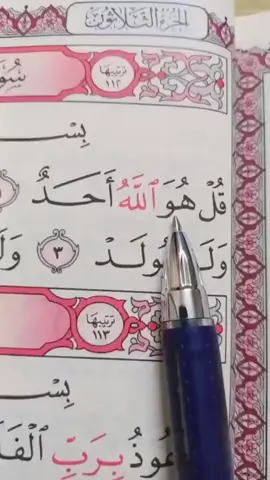 الجزء الثلاثون
سُو ترتيبها ١١٢
بِسْـ
قُلْ هُوَ ٱللَّهُ أَحَدٌ
وَلَـ يُولَدْ ٣ وَلَـ
ترتيبها ١١٣
بِسْـ
عُوذُ بِرَبِّ ٱلْفَلَـ